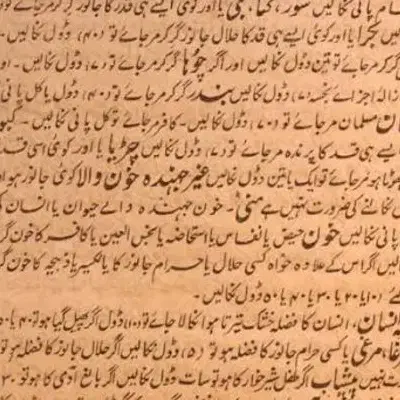 تمام پانی نکالیں سور، کتا، بلی یا اور کوئی ایسے ہی قد کا جانور گر کر مر جائے تو
لیں بکرا یا اور کوئی ایسے ہی قد کا حلال جانور گر کر مر جائے تو (۴۰) ڈول نکا
گر کر مر جائے تو تین ڈول نکالیں اور اگر چوہا گر کر مر جائے تو (۷) ڈول نکالیں۔ او
ازالۂ اجزائے نجسہ (۷) ڈول نکالیں بندر گر کر مر جائے تو (۴۰) ڈول یا کل پانی
مسلمان مر جائے تو (۷۰) ڈول نکالیں۔ کافر مر جائے تو کل پانی نکالیں۔ کبو
ایسے ہی قد کا پرندہ مر جائے تو (۷) ڈول نکالیں چڑیا یا اور کوئی اسی قد
ہو مر جائے تو ایک یا تین ڈول نکالیں غیر جہندہ خون والا کوئی جانور ہو
نکالنے کی ضرورت نہیں ہے منی۔ خون جہندہ والے حیوان یا انسان کی
پانی نکالیں خون حیض یا نفاس یا استحاضہ یا نجس العین یا کافر کا خون گر
لیں اگر اس کے علاوہ خواہ کسی حلال یا حرام جانور کا یا نکسیر یا ذبیحہ کا خون گر
(۱۰) یا ۲۰ یا ۳۰ یا ۴۰ یا ۵۰ ڈول نکالیں۔
انسان، انسان کا فضلہ خشک تیرتا ہوا نکالا جائے تو (۱۰) ڈول اگر پھیل گیا ہو تو ۴۰ یا ۵۰
مرغی یا کسی حرام جانور کا فضلہ ہو تو (۵) ڈول نکالیں اگر حلال جانور کا فضلہ ہو تو
نہیں پیشاب اگر طفل شیر خوار کا ہو تو سات ڈول نکالیں اگر بالغ آدمی کا ہو تو ۳۰